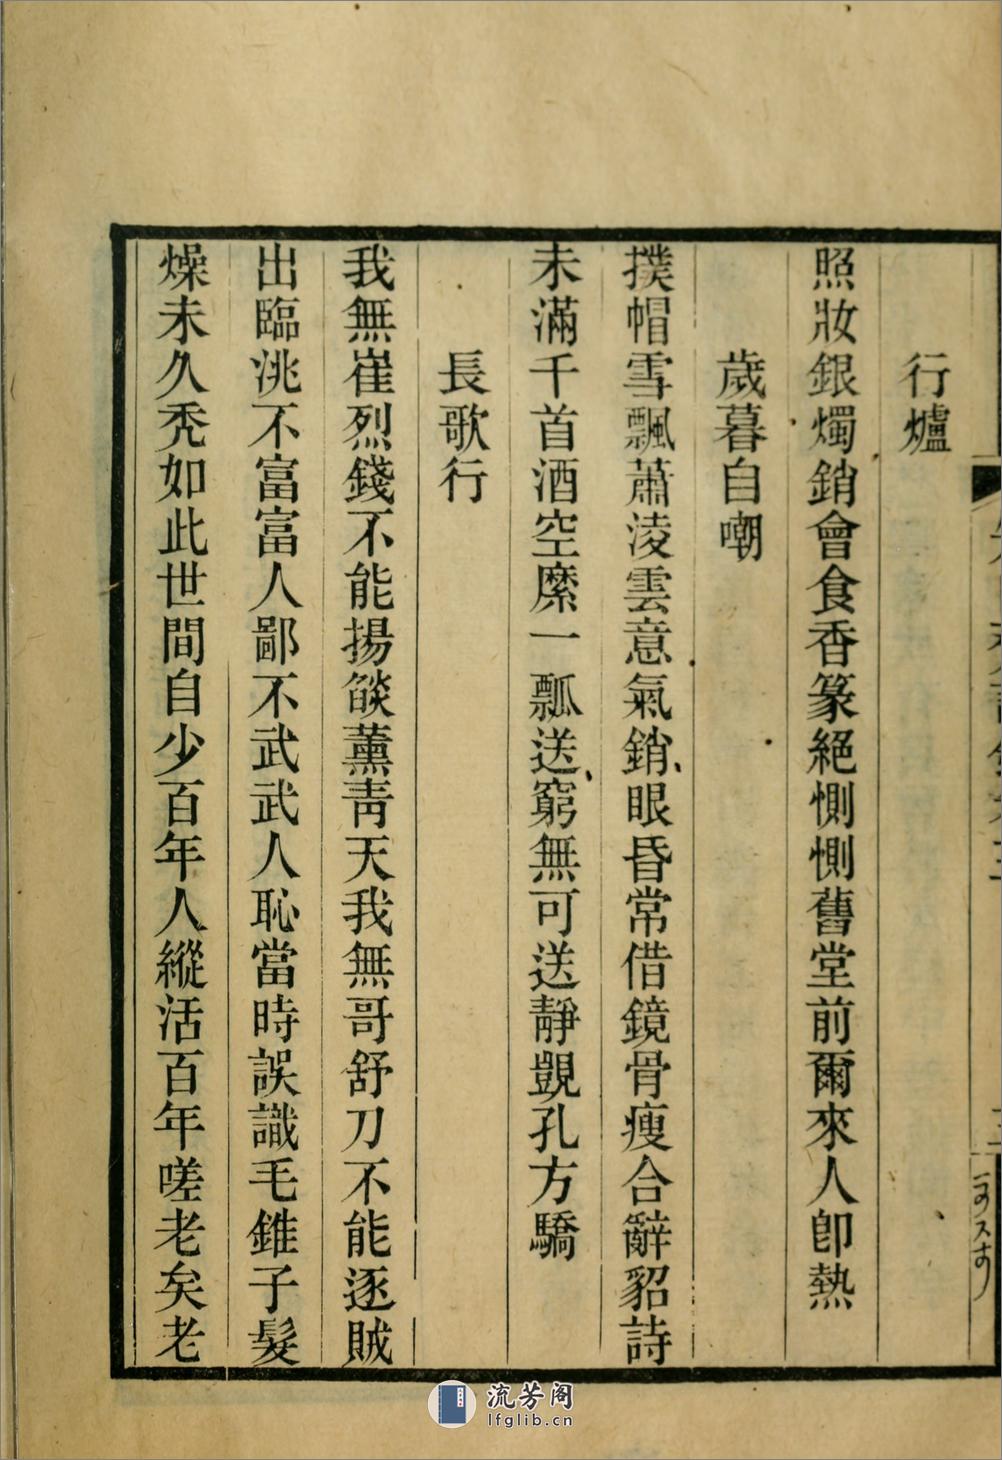 行爐
照妝銀燭銷會食香篆絕惻惻舊堂前爾來人卽熱
歲暮自嘲
撲帽雪飄蕭淩雲意氣銷眼昏常借鏡骨瘦合辭貂詩
未滿千首酒空縻一瓢送窮無可送靜覬孔方驕
長歌行
我無崔烈錢不能揚燄薰靑天我無哥舒刀不能逐賊
出臨洮不富富人鄙不武武人恥當時誤識毛錐子髮
燥未久禿如此世間自少百年人縱活百年嗟老矣老
流芳阁
lfglib.cn